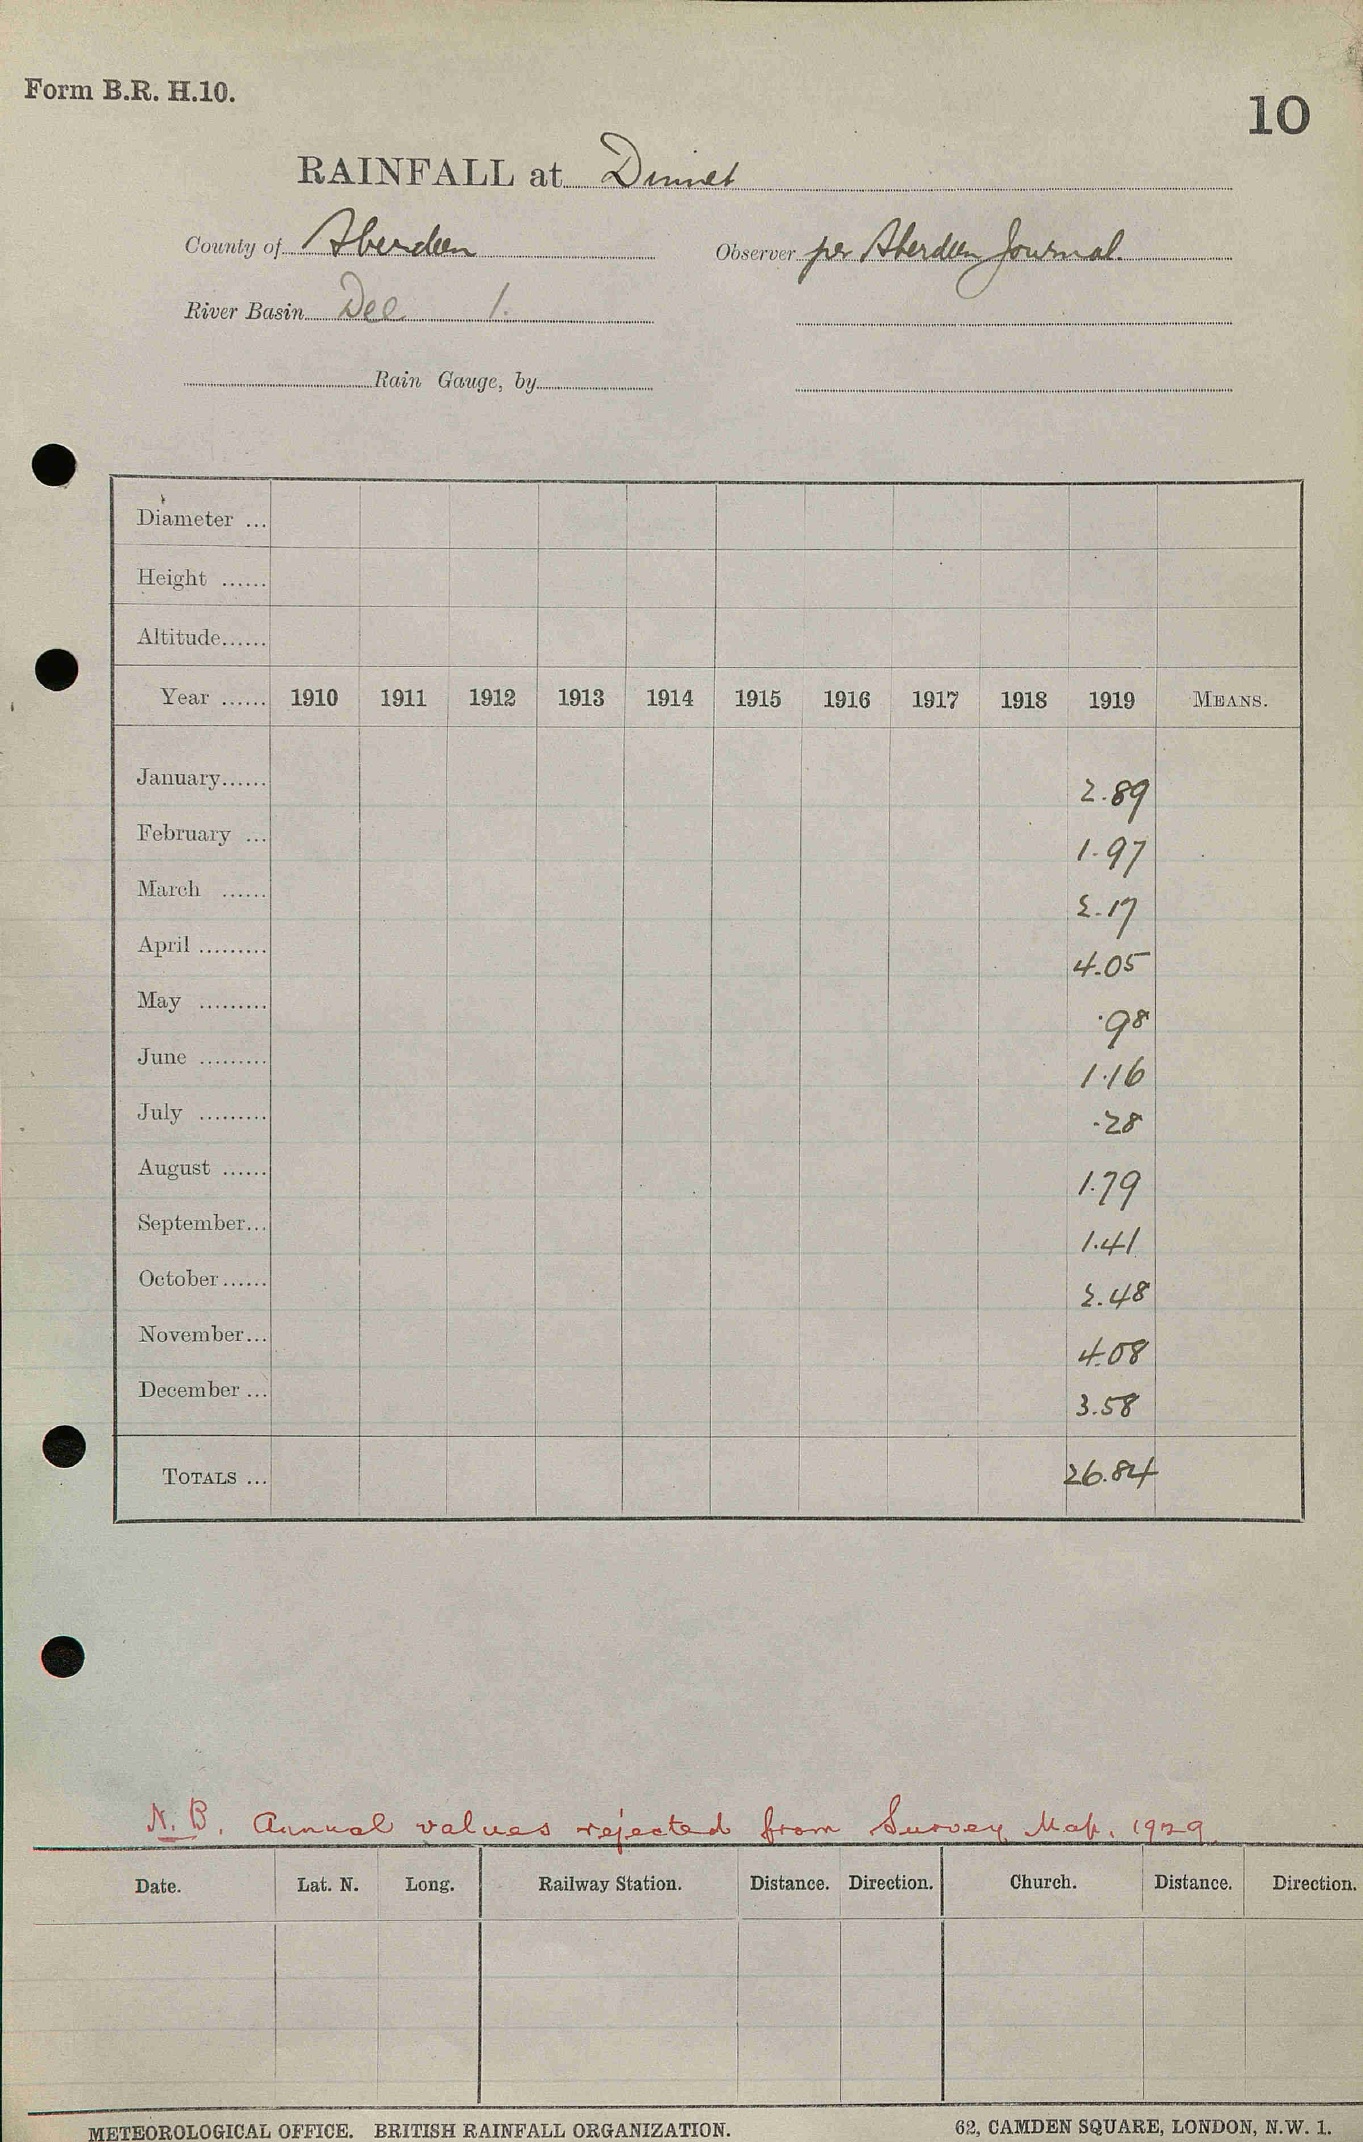 Form B.R. H.10.
10
RAINFALL at Dinnet
County of Aberdeen Observer per Aberdeen Journal.
River Basin Dee 1.
Rain Gauge, by
Diameter ...
Height ......
Altitude......
Year ...... 1910 1911 1912 1913 1914 1915 1916 1917 1918 1919 MEANS.
January...... 2.89
February ... 1.97
March ...... 2.17
April ......... 4.05
May ......... .98
June ......... 1.16
July ......... .28
August ...... 1.79
September... 1.41
October...... 2.48
November... 4.08
December ... 3.58
TOTALS ... 26.84
N.B. Annual values rejected from Survey Map, 1929
Date. Lat. N. Long. Railway Station. Distance. Direction. Church. Distance. Direction.
METEOROLOGICAL OFFICE. BRITISH RAINFALL ORGANIZATION. 62, CAMDEN SQUARE, LONDON, N.W. 1.